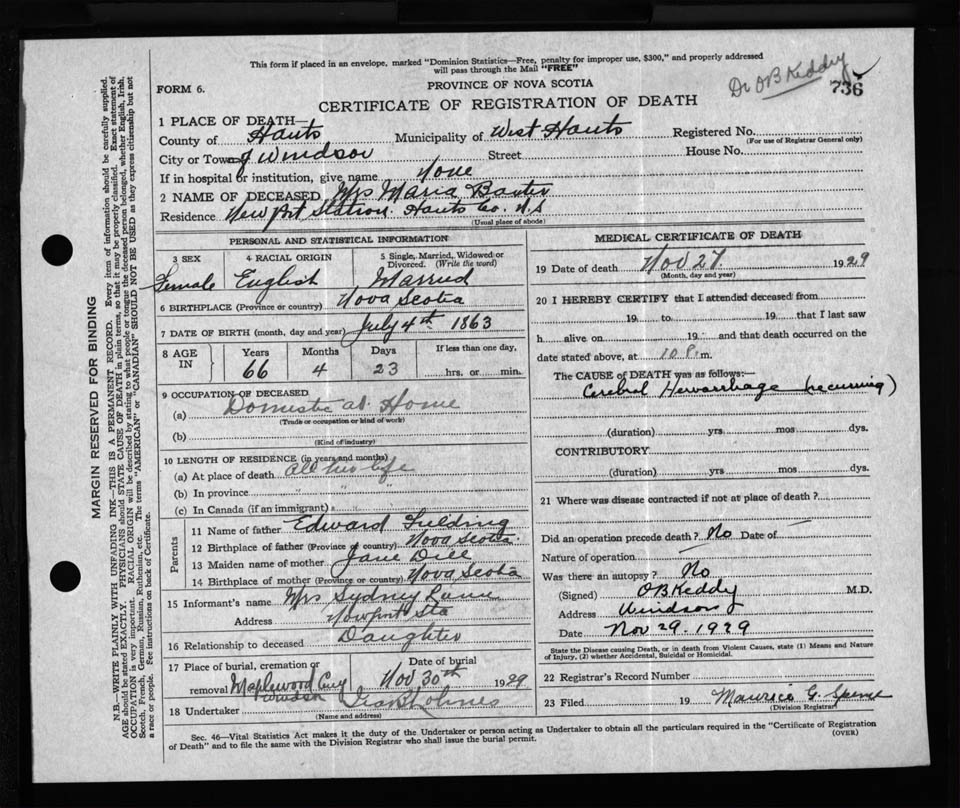 This form if placed in an envelope, marked "Dominion Statistics—Free, penalty for improper use, $300," and properly addressed
will pass through the Mail "FREE"
Dr OB Keddy
736
FORM 6.
PROVINCE OF NOVA SCOTIA
CERTIFICATE OF REGISTRATION OF DEATH
1 PLACE OF DEATH—
County of Hants Municipality of West Hants Registered No.
(For use of Registrar General only)
City or Town of Windsor Street House No.
If in hospital or institution, give name None
2 NAME OF DECEASED Mrs Maria Baxter
Residence Newport Station. Hants Co. N.S
(Usual place of abode)
PERSONAL AND STATISTICAL INFORMATION
3 SEX 4 RACIAL ORIGIN 5 Single, Married, Widowed or
Divorced. (Write the word)
Female English Married
6 BIRTHPLACE (Province or country) Nova Scotia
7 DATE OF BIRTH (month, day and year) July 4th 1863
8 AGE IN Years Months Days If less than one day,
66 4 23 hrs. or min.
9 OCCUPATION OF DECEASED
(a) Domestic at Home
(Trade or occupation or kind of work)
(b)
(Kind of industry)
10 LENGTH OF RESIDENCE (in years and months)
(a) At place of death All her life
(b) In province " "
(c) In Canada (if an immigrant)
Parents
11 Name of father Edward Fulding
12 Birthplace of father (Province or country) Nova Scotia
13 Maiden name of mother Jane Dill
14 Birthplace of mother (Province or country) Nova Scotia
15 Informant's name Mrs Sydney
Address Newport Sta
16 Relationship to deceased Daughter
17 Place of burial, cremation or Date of burial
removal Maplewood Cmy Nov 30th 1929
Windsor
18 Undertaker
(Name and address)
MEDICAL CERTIFICATE OF DEATH
19 Date of death Nov 27 1929
(Month, day and year)
20 I HEREBY CERTIFY that I attended deceased from
19 to 19 that I last saw
h alive on 19 and that death occurred on the
date stated above, at 10 P. m.
The CAUSE of DEATH was as follows:—
Cerebral Hemorrhage (recurring)
(duration) yrs mos dys.
CONTRIBUTORY
(duration) yrs mos dys.
21 Where was disease contracted if not at place of death?
Did an operation precede death? No Date of
Nature of operation
Was there an autopsy? No
(Signed) OB Keddy M.D.
Address Windsor
Date Nov 29. 1929
State the Disease causing Death, or in death from Violent Causes, state (1) Means and Nature
of Injury, (2) whether Accidental, Suicidal or Homicidal.
22 Registrar's Record Number
23 Filed 19 Maurice G.
(Division Registrar)
Sec. 46—Vital Statistics Act makes it the duty of the Undertaker or person acting as Undertaker to obtain all the particulars required in the "Certificate of Registration
of Death" and to file the same with the Division Registrar who shall issue the burial permit. (OVER)
MARGIN RESERVED FOR BINDING
N.B.—WRITE PLAINLY WITH UNFADING INK—THIS IS A PERMANENT RECORD. Every item of information should be carefully supplied.
AGE should be stated EXACTLY. PHYSICIANS should STATE CAUSE OF DEATH in plain terms, so that it may be properly classified. Exact statement of
OCCUPATION is very important. RACIAL ORIGIN will be described by stating to what people or tongue the deceased person belonged, whether English, Irish,
Scotch, French, German, Russian, Ruthenian, etc. The terms "AMERICAN" or "CANADIAN" SHOULD NOT BE USED as they express citizenship but not
a race or people. See instructions on back of Certificate.